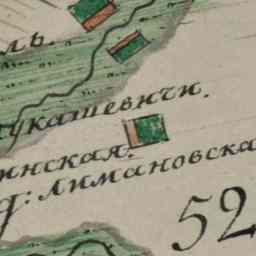 ль.
лукашевичи.
инская.
д: Лимановска
52